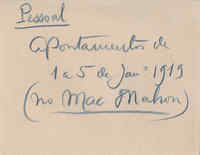 Pessoal
apontamentos de
1 a 5 de Janº 1919
(no Mac Mahon)